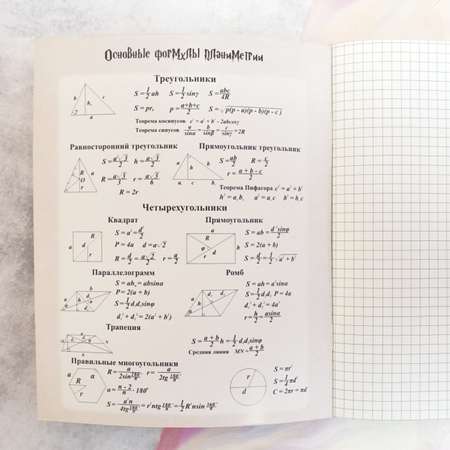 Основные формулы планиметрии
Треугольники
S=½ah S=½sinγ S=abc/4R
S=pr, p=a+b+c/2 S=√p(p-a)(p-b)(p-c)
Теорема косинусов c²=a²+b²-2abcosγ
Теорема синусов a/sinα=b/sinβ=c/sinγ=2R
Равносторонний треугольник
S=a²√3/4 h=a√3/2
R=a√3/3 r=a√3/6
R=2r
Прямоугольник треугольник
S=ab/2 R=c/2
r=a+b-c/2
Теорема Пифагора c²=a²+b²
Четырехугольники
Квадрат
S=a²=d²/2
P=4a d=a√2
R=d/2=a√2/2 r=a/2
Прямоугольник
S=ab=d²sinφ/2
S=2(a+b)
Параллелограмм
S=ah=absinα
P=2(a+b)
S=½d₁d₂sinφ
d₁²+d₂²=2(a²+b²)
Ромб
S=ah=a²sinα
S=½d₁d₂ P=4a
d₁²+d₂²=4a²
Трапеция
S=a+b/2h=½d₁d₂sinφ
Средняя линия MN=a+b/2
Правильные многоугольники
α=n-2/n·180°
S=πr²
C=2πr=πd